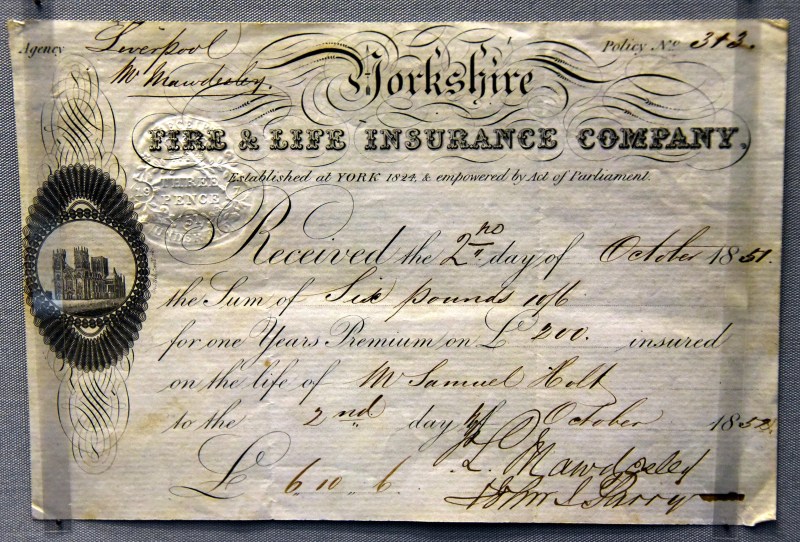 Agency Liverpool Policy No. 343.
Mr Mawdsley.
Yorkshire
FIRE & LIFE INSURANCE COMPANY,
Established at YORK 1824, & empowered by Act of Parliament.
THREE
PENCE
Received the 2nd day of October 1851.
the Sum of Six pounds 10/6
for one Years Premium on £ 200. insured
on the life of Mr Samuel Holt
to the 2nd day of October 1852
£ 6 „ 10 „ 6. Mawdsley
John S Parry